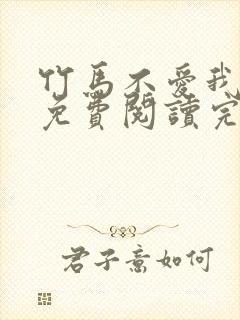 竹馬不愛我
免費閱讀完
君子意如何